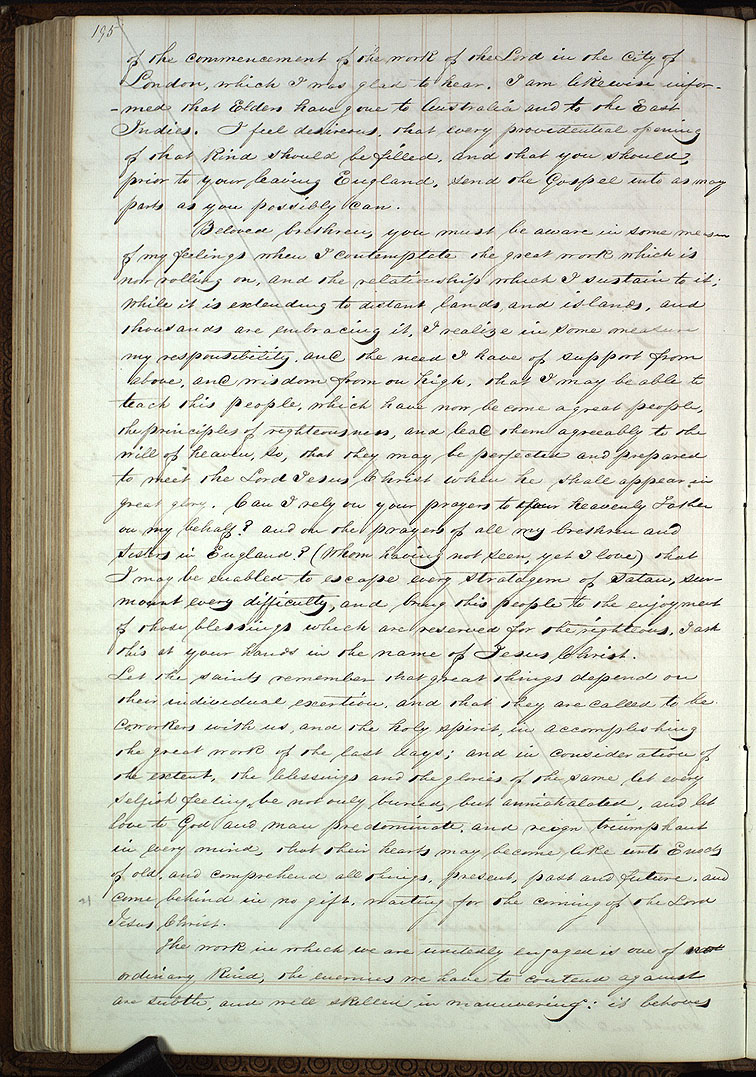 195
of the commencement of the work of the Lord in the city of
London, which I was glad to hear. I am likewise infor-
-med that Elders have gone to Australia and to the East
Indies. I feel desireous, that every providential opening
of that kind should be filled, and that you should,
prior to your leaving England, send the Gospel into as may
parts as you possibly can.
Beloved brethren, you must be aware in some measure
of my feelings when I contemplate the great work which is
now rolling on, and the relationship which I sustain to it;
while it is extending to distant lands, and islands, and
thousands are embracing it, I realize in some measure
my responsibility, and the need I have of support from
above, and wisdom from on high, that I may be able to
teach this people, which have now become a great people,
the principles of righteousness, and lead them agreeably to the
will of heaven, so, that they may be perfected and prepared
to meet the Lord Jesus Christ when he shall appear in
great glory. Can I rely on your prayers to your heavenly Father
on my behalf? and on the prayers of all my brethren and
sisters in England? (Whom having not seen, yet I love) that
I may be enabled to escape every stratagem of Satan, sur-
mount every difficulty, and bring this people to the enjoyment
of those blessings which are reserved for the righteous. I ask
this at your hands in the name of Jesus Christ.
Let the saints remember that great things depend on
their individual exertion, and that they are called to be
coworkers with us, and the holy spirit, in accomplishing
the great work of the last days; and in consideration of
the extent, the blessings and the glories of the same let every
selfish feeling be not only buried, but annihalated, and let
love to God and man predominate, and reign triumphant
in every mind, that their hearts may become like unto Enoch
of old, and comprehend all things, present, past and future, and
come behind in no gift, waiting for the coming of the Lord
Jesus Christ.
The work in which we are unitedly engaged is one of
ordinary kind, the enemies we have to contend against
are subtle, and well skilled in maneuvering: it behoves